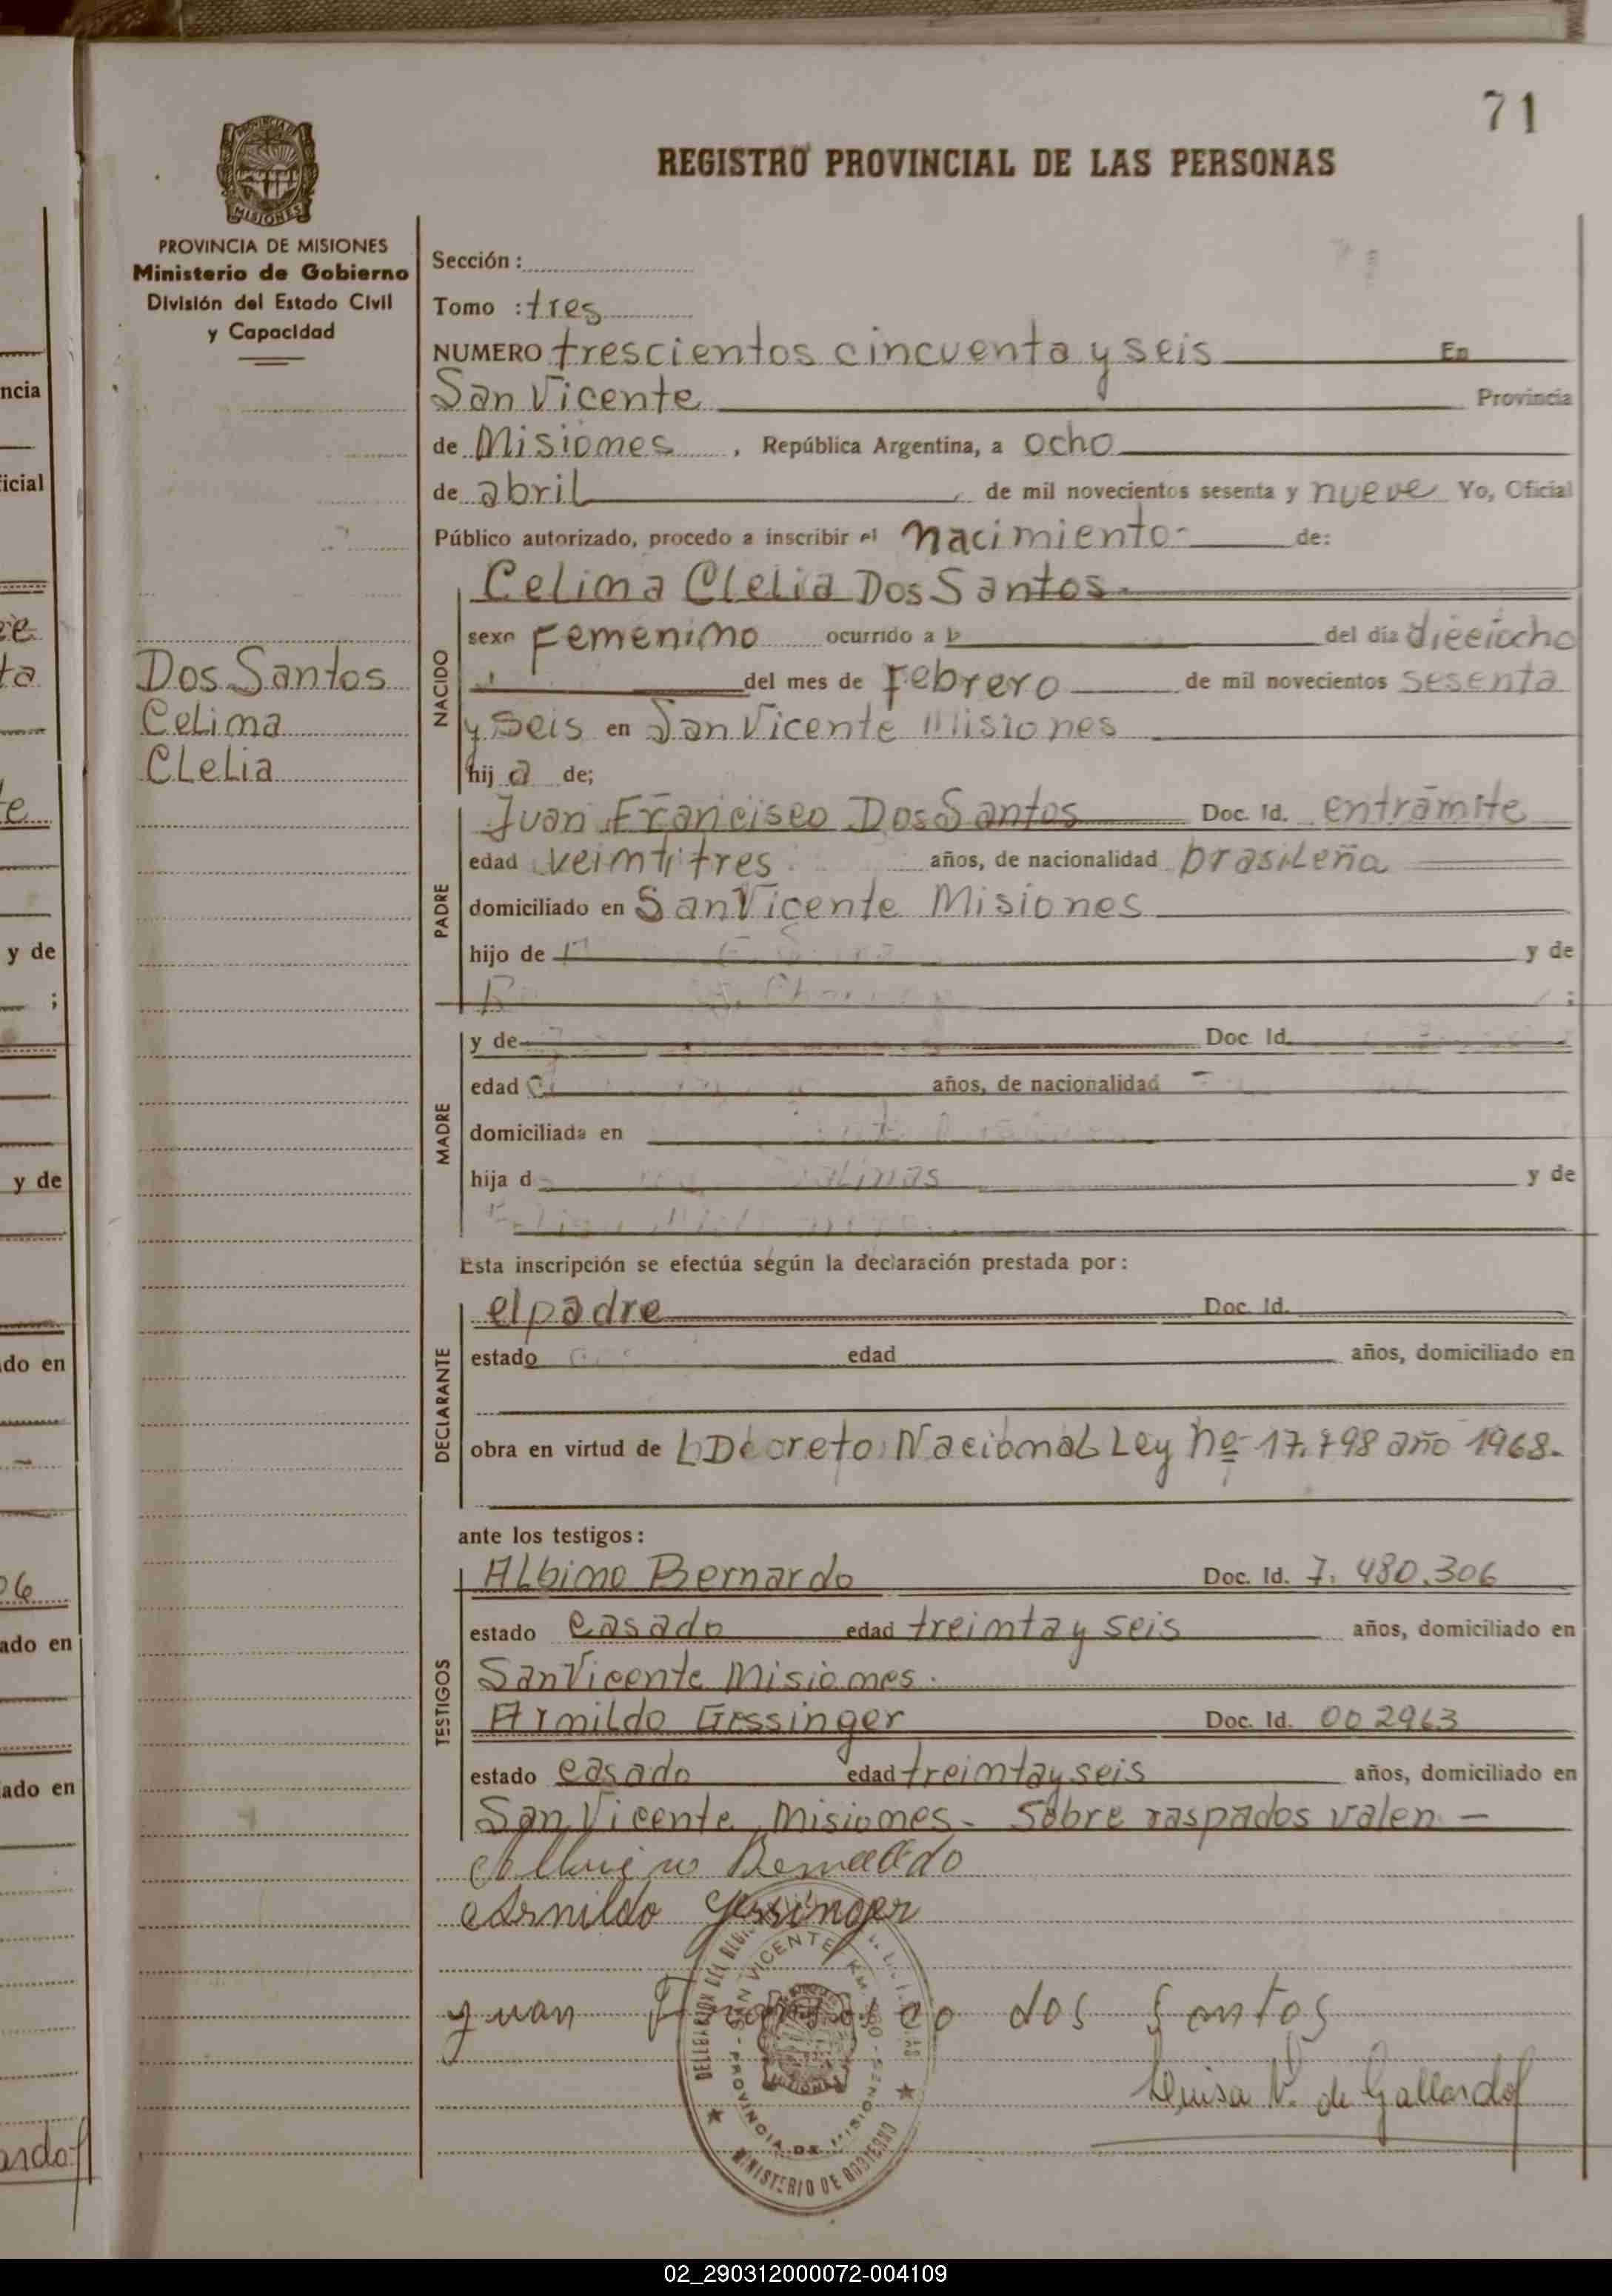 71
REGISTRO PROVINCIAL DE LAS PERSONAS
PROVINCIA DE MISIONES
Ministerio de Gobierno
División del Estado Civil
y Capacidad
Sección :
Tomo : tres
NUMERO trescientos cincuenta y seis En
San Vicente Provincia
de Misiones , República Argentina, a ocho
de abril de mil novecientos sesenta y nueve Yo, Oficial
Público autorizado, procedo a inscribir el nacimiento- de:
Dos Santos
Celima
Clelia
NACIDO
Celima Clelia Dos Santos.
sexo Femenimo ocurrido a del día dieciocho
del mes de Febrero de mil novecientos sesenta
y seis en San Vicente Misiones
hij a de;
PADRE
Juan Francisco Dos Santos Doc. Id. en trámite
edad veimtitres años, de nacionalidad brasileña
domiciliado en San Vicente Misiones
hijo de y de
;
MADRE
y de Doc. Id.
edad años, de nacionalidad
domiciliada en
hija d y de
Esta inscripción se efectúa según la declaración prestada por :
DECLARANTE
el padre Doc. Id.
estado edad años, domiciliado en
obra en virtud de L Decreto Nacional Ley nº 17.798 año 1968.
ante los testigos :
TESTIGOS
Albimo Bernardo Doc. Id. 7.480.306
estado casado edad treimta y seis años, domiciliado en
San Vicente Misiomes.
Arnildo Gessinger Doc. Id. 002963
estado casado edad treimta y seis años, domiciliado en
San Vicente Misiomes. Sobre raspados valen -
Bernardo
Arnildo Gessinger
Juan Francisco dos Santos
Luisa V. de Gallardo
SAN VICENTE
PROVINCIA DE MISIONES
MINISTERIO DE GOBIERNO
MISIONES
ncia
icial
y de
;
y de
do en
06
ado en
ado en
02_290312000072-004109